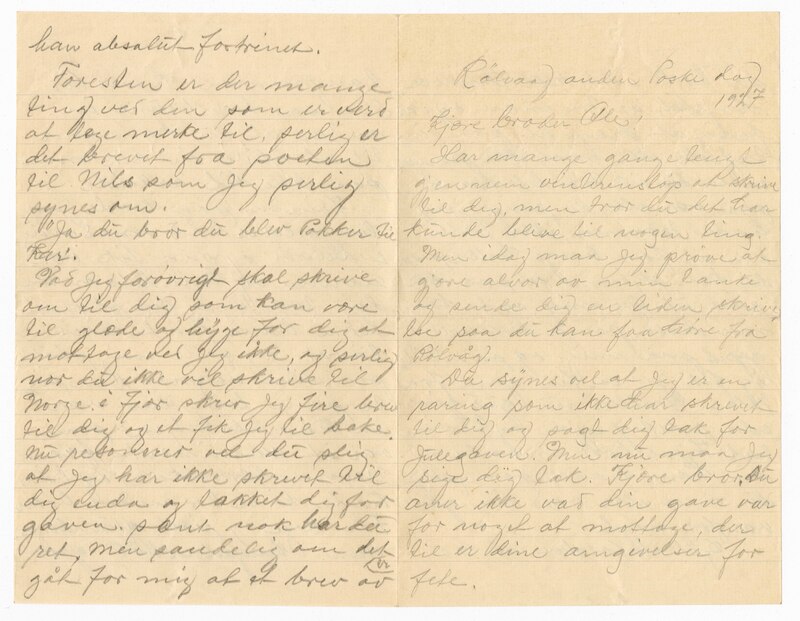 han absolut fortrinet.
Foresten er der mange
ting ved den som er verd
at lege merke til. serlig er
det brevet fra poeten
til Nils som jeg serlig
synes om.
Ja du bror du blev Pokker til
Kar.
Vad jeg forøvrigt skal skrive
om til dig som kan være
til glæde og hyge for dig at
mottage ved jeg ikke, og serlig
nor du ikke vil skrive til
Norge. i Fjor skrev jeg fire brev
til dig og et fik jeg til bake.
Nu resonerer vel du slig
at jeg har ikke skrevet til
dig enda og takket dig for
gaven. sant nok har du
ret. Men sandelig om det er
gåt for mig at et brev av
Rølvaag anden Poske dag
1927
Kjære broder Ole!
Har mange gange tengt
gjennem vinterens løp at skrive
til dig, men tror du det har
kunde blive til nogen ting.
Men idag maa jeg prøve at
gjøre alvor av min tanke
og sende dig en liden skrivel
se saa du kan faa høre fra
Rølvåg.
Du synes vel at jeg er en
raring som ikke har skrevet
til dig og sagt dig tak for
Julegaven. Men nu maa jeg
sige dig tak. Kjære bror. Du
aner ikke vad din gave var
for noget at mottage, der
til er dine omgivelser for
fete.